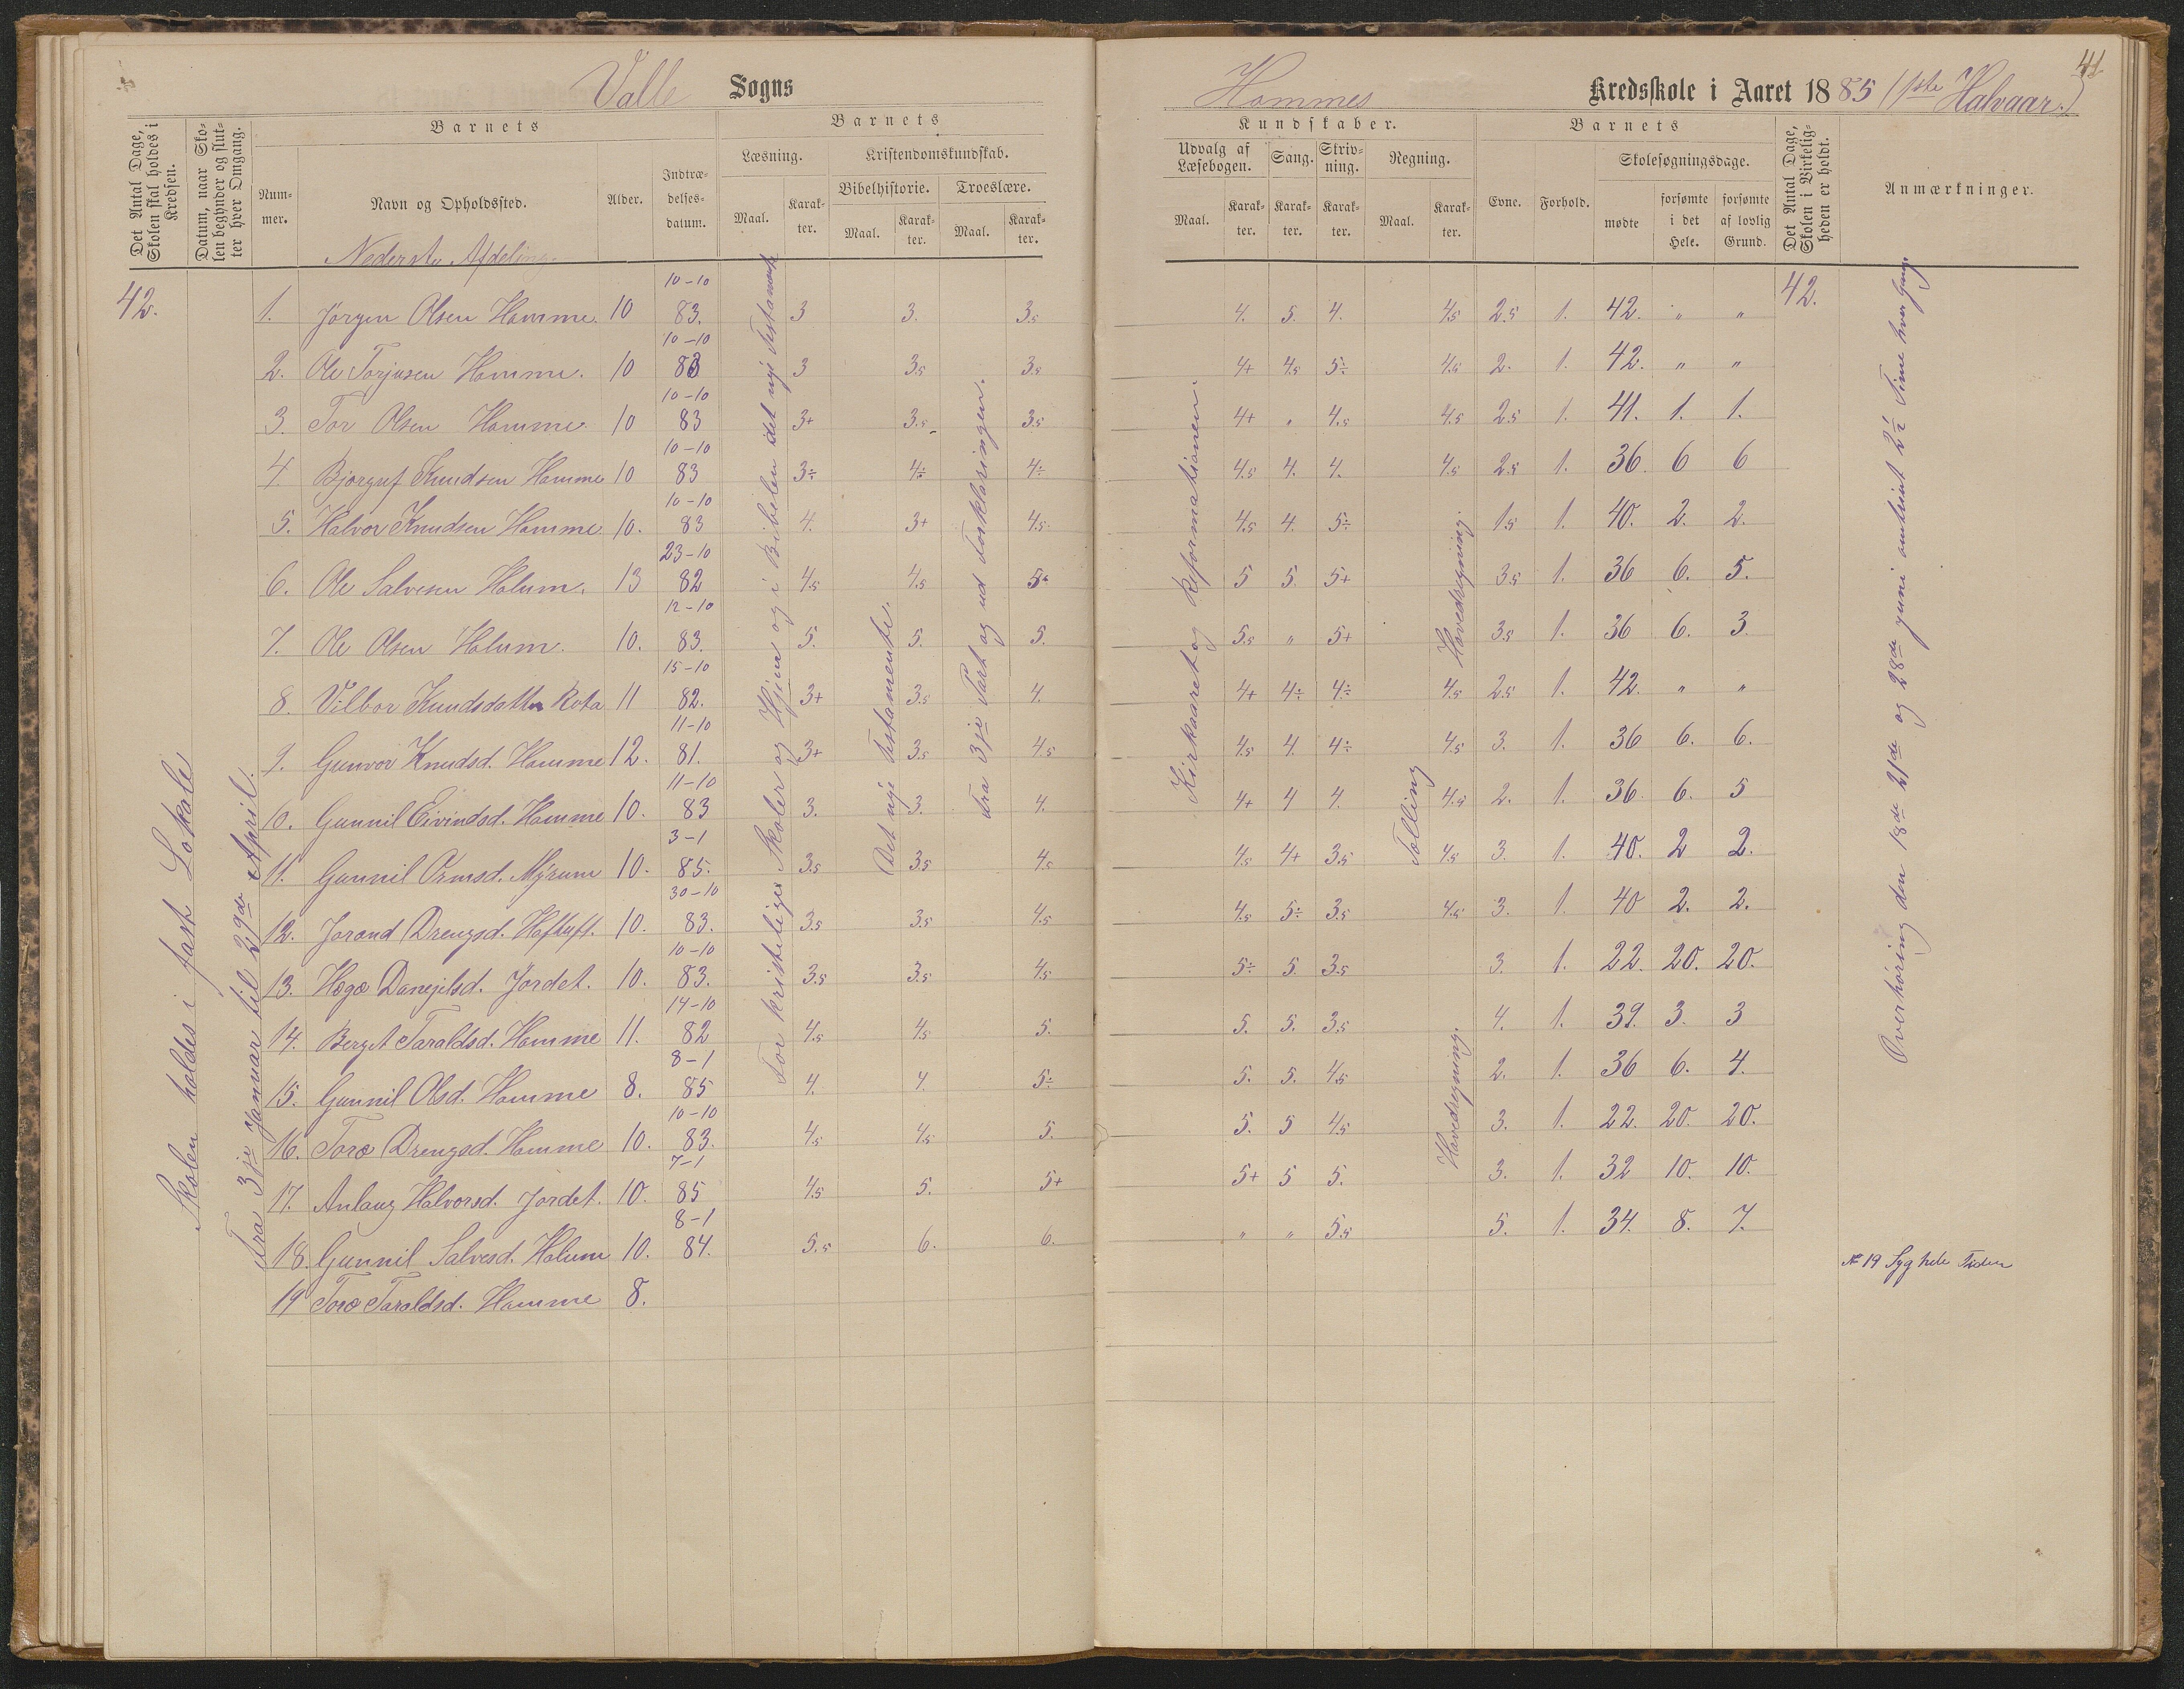 Valle Sogns
Hommes Kredsskole i Aaret 1885 (1ste Halvaar.)
41
Det Antal Dage, Skolen skal holdes i Kredsen.
Datum, naar Skolen begynder og slutter hver Omgang.
Barnets
Nummer.
Navn og Opholdssted.
Alder.
Indtrædelsesdatum.
Barnets
Læsning.
Maal.
Karakter.
Kristendomskundskab.
Bibelhistorie.
Maal.
Karakter.
Troeslære.
Maal.
Karakter.
Kundskaber.
Udvalg af Læsebogen.
Maal.
Karakter.
Sang.
Karakter.
Skrivning.
Karakter.
Regning.
Maal.
Karakter.
Barnets
Evne.
Forhold.
Skolesøgningsdage.
mødte
forsømte i det Hele.
forsømte af lovlig Grund.
Det Antal Dage, Skolen i Virkeligheden er holdt.
Anmærkninger.
Nederste Afdeling
42.
Skolen holdes i fast Lokale
Fra 3je Januar til 29de April.
For kristelige Skoler og Hjem og i Bibelen det nye Testamente
Det nye Testamente.
Fra 3je Part og ud Forklaringen.
Kirkeaaret og Reformationen.
Tolling
Hovedregning.
Hovedregning.
42.
Overhøring den 18de 21de og 28de juni omtrent 2½ Time hver Gang
1. Jørgen Olsen Homme. 10 10-10 83. 3 3. 3.5 4. 5. 4. 4.5 2.5 1. 42. " "
2. Ole Torjusen Homme. 10 10-10 83 3 3.5 3.5 4+ 4.5 5÷ 4.5 2. 1. 42. " "
3. Tor Olsen Homme. 10 10-10 83 3+ 3.5 3.5 4+ " 4.5 4.5 2.5 1. 41. 1. 1.
4. Bjørguf Knudsen Homme 10 10-10 83 3÷ 4÷ 4÷ 4.5 4. 4. 4.5 2.5 1. 36. 6 6
5. Halvor Knudsen Homme. 10. 10-10 83 4. 3+ 4.5 4.5 4. 5÷ 1.5 1. 40. 2. 2.
6. Ole Salvesen Holum. 13 23-10 82 4.5 4.5 5÷ 5 5. 5+ 3.5 1. 36 6. 5.
7. Ole Olsen Holum. 10. 12-10 83. 5. 5. 5. 5.5 " 5+ 3.5 1. 36 6. 3.
8. Vilbor Knudsdatter Rota 11 15-10 82. 3+ 3.5 4. 4+ 4÷ 4÷ 4.5 2.5 1. 42. " "
9. Gunvor Knudsd. Homme 12. 11-10 81. 3+ 3.5 4.5 4.5 4. 4÷ 4.5 3. 1. 36 6. 6.
10. Gunnil Eivindsd. Homme 10. 11-10 83 3. 3. 4. 4+ 4 4. 4.5 2. 1. 36. 6. 5
11. Gunnil Ormsd. Myrum 10. 3-1 85. 3.5 3.5 4.5 4.5 4+ 3.5 4.5 3. 1. 40. 2 2.
12. Jorand Drengsd. Hoftuft. 10. 30-10 83. 3.5 3.5 4.5 4.5 5÷ 3.5 4.5 3. 1. 40 2. 2.
13. Hege Danejilsd. Jordet. 10. 10-10 83. 3.5 3.5 4.5 5÷ 5. 3.5 3. 1. 22. 20. 20.
14. Berget Taraldsd. Homme 11. 14-10 82 4.5 4.5 5. 5. 5. 3.5 4. 1. 39. 3. 3
15. Gunnil Olsd. Homme 8. 8-1 85 4. 4. 5÷ 5. 5. 4.5 2. 1. 36 6. 4.
16. Toro Drengsd. Homme 10. 10-10 83. 4.5 4.5 5. 5. 5 4.5 3. 1. 22. 20. 20.
17. Anlaug Halvorsd. Jordet. 10. 7-1 85 4.5 5. 5+ 5+ 5 5. 3. 1. 32 10. 10.
18. Gunnil Salvesd. Holum 10. 8-1 84. 5.5 6. 6. " " 5.5 5. 1. 34. 8. 7.
19 Toro Taraldsd. Homme 8.
№ 19 Syg hele Tiden